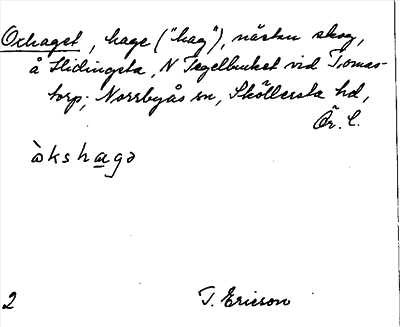 Oxhaget, hage ("hag"), nästan skog,
å Hidingsta, N Tegelbruket vid Tomas-
torp; Norrbyås sn, Sköllersta hd,
Ör. l.
ò̀kshagə
2 T. Ericson